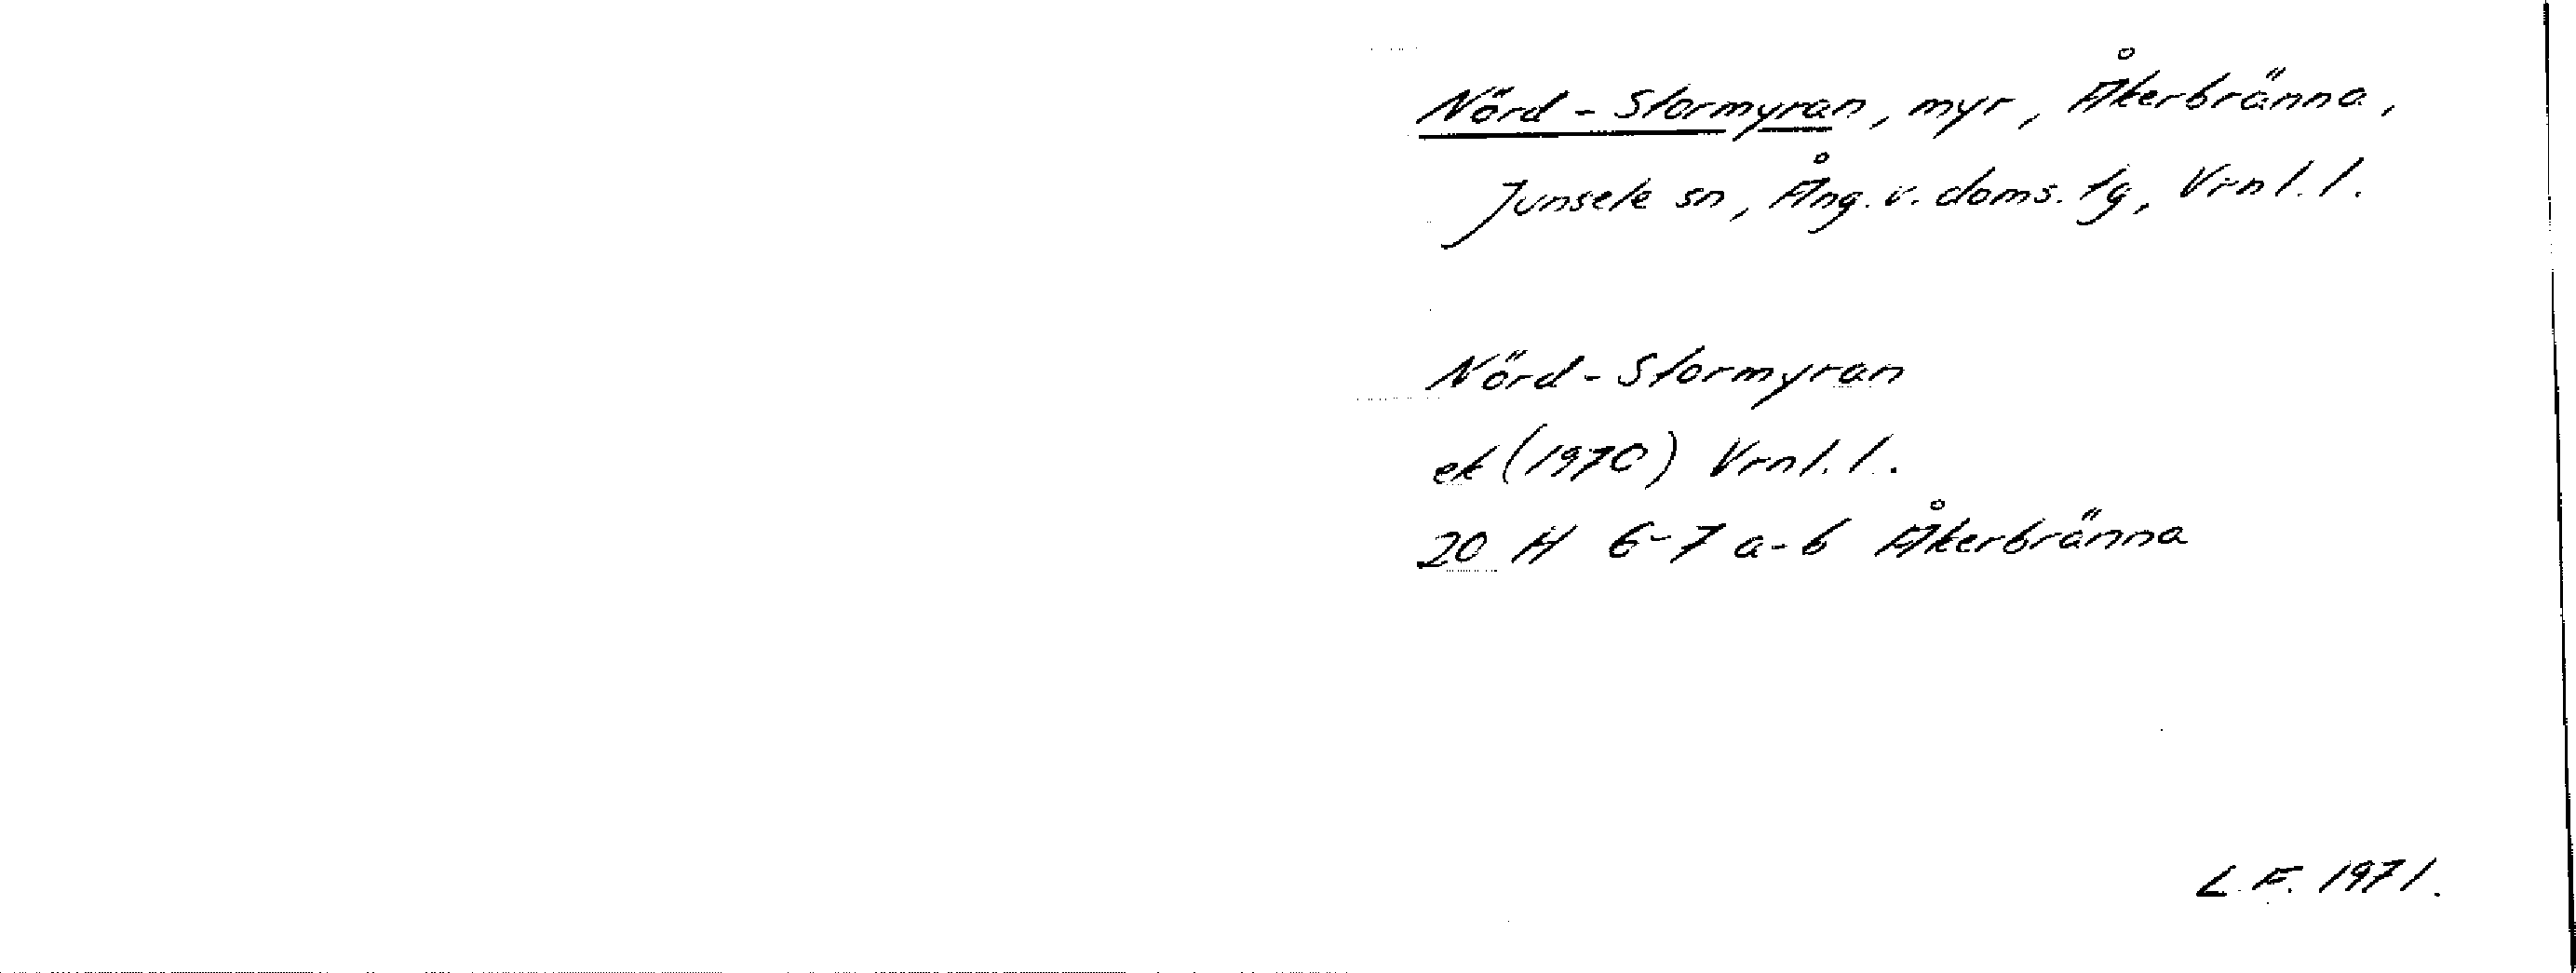 Nörd-Stormyran, myr, Åkerbränna,
Junsele sn, Ång. v. doms. tg, Vrnl. l.
Nörd-Stormyran
ek (1970) Vrnl. l.
20 H 6-7 a-b Åkerbränna
L.F. 1971.